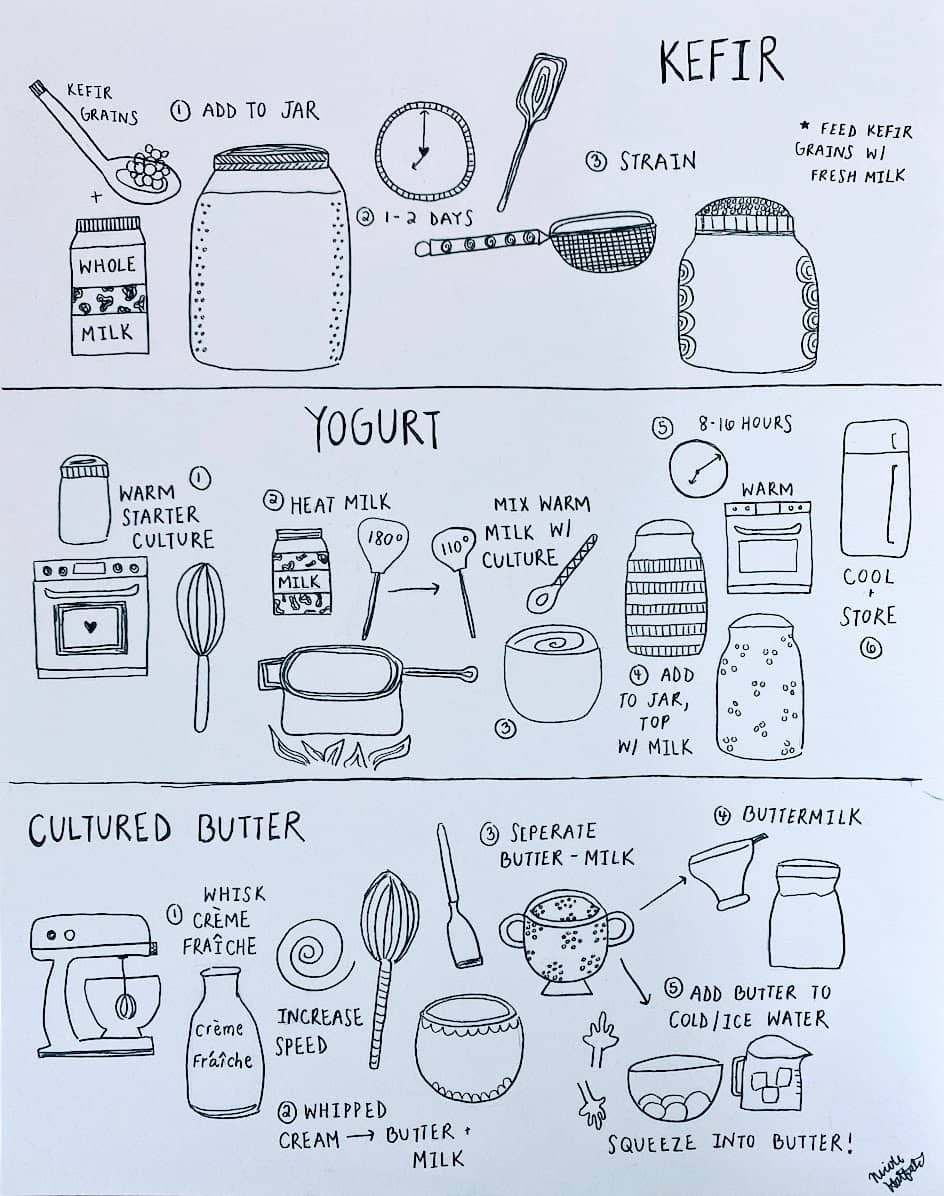 KEFIR
KEFIR
GRAINS
+
WHOLE
MILK
① ADD TO JAR
② 1-2 DAYS
③ STRAIN
* FEED KEFIR
GRAINS W/
FRESH MILK
YOGURT
①
WARM
STARTER
CULTURE
② HEAT MILK
MILK
180°
110°
MIX WARM
MILK W/
CULTURE
③
④ ADD
TO JAR,
TOP
W/ MILK
⑤ 8-16 HOURS
WARM
COOL
+
STORE
⑥
CULTURED BUTTER
① WHISK
CRÈME
FRAÎCHE
crème
Fraîche
INCREASE
SPEED
② WHIPPED
CREAM → BUTTER +
MILK
③ SEPERATE
BUTTER - MILK
④ BUTTERMILK
⑤ ADD BUTTER TO
COLD/ICE WATER
SQUEEZE INTO BUTTER!